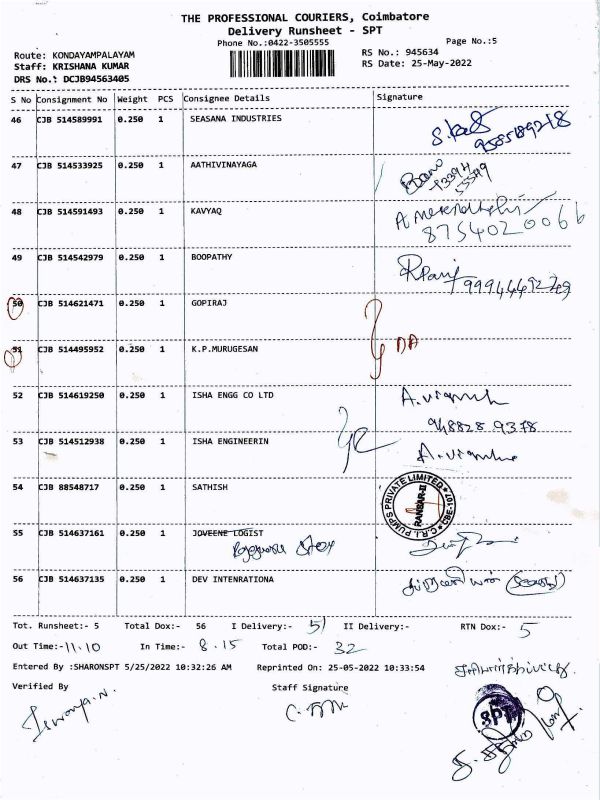 THE PROFESSIONAL COURIERS, Coimbatore
Delivery Runsheet - SPT
Phone No.:0422-3505555
Page No.:5
Route: KONDAYAMPALAYAM
RS No.: 945634
Staff: KRISHANA KUMAR
RS Date: 25-May-2022
DRS No.: DCJB94563405
S No Consignment No Weight PCS Consignee Details Signature
46 CJB 514589991 0.250 1 SEASANA INDUSTRIES
47 CJB 514533925 0.250 1 AATHIVINAYAGA
48 CJB 514591493 0.250 1 KAVYAQ
8754020066
49 CJB 514542979 0.250 1 BOOPATHY
50 CJB 514621471 0.250 1 GOPIRAJ
51 CJB 514495952 0.250 1 K.P.MURUGESAN
DA
52 CJB 514619250 0.250 1 ISHA ENGG CO LTD
53 CJB 514512938 0.250 1 ISHA ENGINEERIN
54 CJB 88548717 0.250 1 SATHISH
C.R.I. PUMPS PRIVATE LIMITED
55 CJB 514637161 0.250 1 JOVEENE LOGIST
56 CJB 514637135 0.250 1 DEV INTENRATIONA
Tot. Runsheet:- 5 Total Dox:- 56 I Delivery:- 51 II Delivery:- RTN Dox:- 5
Out Time:-11.10 In Time:- 8.15 Total POD:- 32
Entered By :SHARONSPT 5/25/2022 10:32:26 AM Reprinted On: 25-05-2022 10:33:54
Verified By Staff Signature
SPT